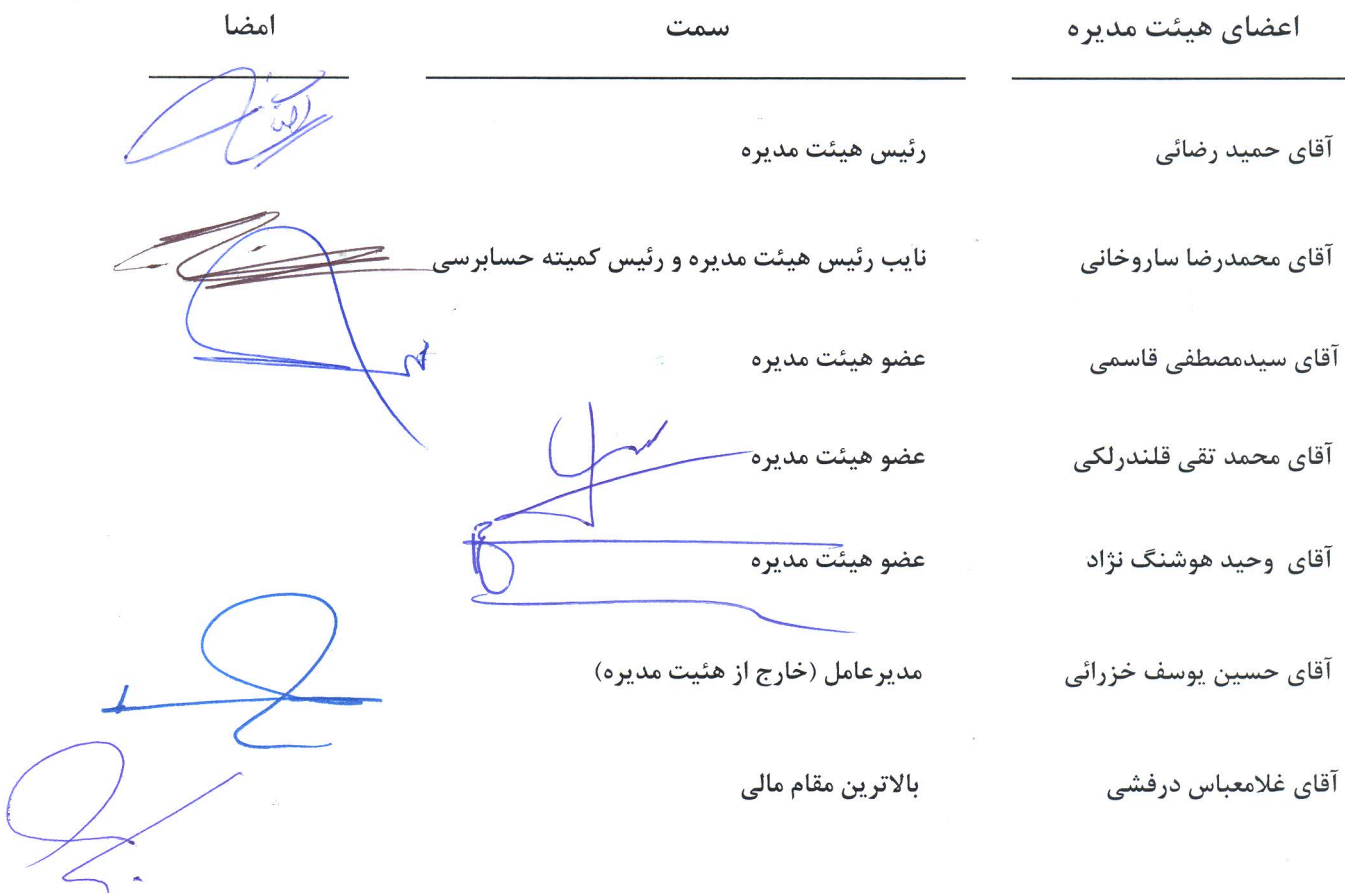 اعضای هیئت مدیره سمت امضا
آقای حمید رضائی رئیس هیئت مدیره
آقای محمدرضا ساروخانی نایب رئیس هیئت مدیره و رئیس کمیته حسابرسی
آقای سیدمصطفی قاسمی عضو هیئت مدیره
آقای محمد تقی قلندرلکی عضو هیئت مدیره
آقای وحید هوشنگ نژاد عضو هیئت مدیره
آقای حسین یوسف خزرائی مدیرعامل (خارج از هئیت مدیره)
آقای غلامعباس درفشی بالاترین مقام مالی